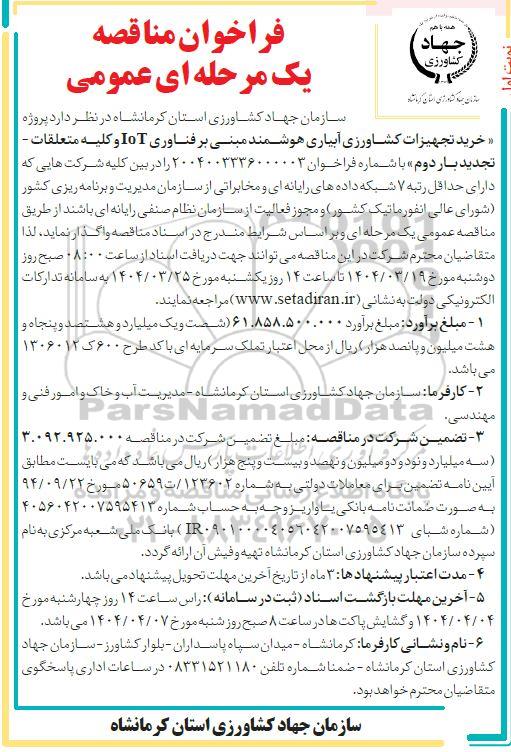 نوبت اول
همه با هم
جهاد
کشاورزی
سازمان جهاد کشاورزی استان کرمانشاه
فراخوان مناقصه
یک مرحله ای عمومی
سازمان جهاد کشاورزی استان کرمانشاه در نظر دارد پروژه
« خرید تجهیزات کشاورزی آبیاری هوشمند مبتنی بر فناوری IoT و کلیه متعلقات -
تجدید بار دوم» با شماره فراخوان ۲۰۰۴۰۰۳۳۳۶۰۰۰۰۰۳ را در بین کلیه شرکت هایی که
دارای حداقل رتبه ۷ شبکه داده های رایانه ای و مخابراتی از سازمان مدیریت و برنامه ریزی کشور
(شورای عالی انفورماتیک کشور) و مجوز فعالیت از سازمان نظام صنفی رایانه ای باشند از طریق
مناقصه عمومی یک مرحله ای و بر اساس شرایط مندرج در اسناد مناقصه واگذار نماید، لذا
متقاضیان محترم شرکت در این مناقصه می توانند جهت دریافت اسناد از ساعت ۰۸:۰۰ صبح روز
دوشنبه مورخ ۱۴۰۴/۰۳/۱۹ تا ساعت ۱۴ روز یکشنبه مورخ ۱۴۰۴/۰۳/۲۵ به سامانه تدارکات
الکترونیکی دولت به نشانی (www.setadiran.ir) مراجعه نمایند.
۱- مبلغ برآورد: مبلغ برآورد ۶۱.۸۵۸.۵۰۰.۰۰۰ (شصت و یک میلیارد و هشتصد و پنجاه و
هشت میلیون و پانصد هزار) ریال از محل اعتبار تملک سرمایه ای با کد طرح ۶۰۰ ک ۱۳۰۶۰۱۲
می باشد.
۲- کارفرما: سازمان جهاد کشاورزی استان کرمانشاه - مدیریت آب و خاک و امور فنی و
مهندسی.
۳- تضمین شرکت در مناقصه: مبلغ تضمین شرکت در مناقصه ۳.۰۹۲.۹۲۵.۰۰۰
(سه میلیارد و نود و دو میلیون و نهصد و بیست و پنج هزار) ریال می باشد که می بایست مطابق
آیین نامه تضمین برای معاملات دولتی به شماره ۱۲۳۴۰۲/ت۵۰۶۵۹ه مورخ ۹۴/۰۹/۲۲
به صورت ضمانت نامه بانکی یا واریز وجه به حساب شماره ۴۰۵۶۰۴۲۰۰۷۵۹۵۴۱۳
(شماره شبای IR۰۹۰۱۰۰۰۰۴۰۵۶۰۴۲۰۰۷۵۹۵۴۱۳) بانک ملی شعبه مرکزی به نام
سپرده سازمان جهاد کشاورزی استان کرمانشاه تهیه و فیش آن ارائه گردد.
۴- مدت اعتبار پیشنهادها: ۳ ماه از تاریخ آخرین مهلت تحویل پیشنهاد می باشد.
۵- آخرین مهلت بازگشت اسناد (ثبت در سامانه): راس ساعت ۱۴ روز چهارشنبه مورخ
۱۴۰۴/۰۴/۰۴ و گشایش پاکت ها در ساعت ۸ صبح روز شنبه مورخ ۱۴۰۴/۰۴/۰۷ می باشد.
۶- نام و نشانی کارفرما: کرمانشاه - میدان سپاه پاسداران - بلوار کشاورز - سازمان جهاد
کشاورزی استان کرمانشاه - ضمنا شماره تلفن ۰۸۳۳۱۵۲۱۱۸۰ در ساعات اداری پاسخگوی
متقاضیان محترم خواهد بود.
سازمان جهاد کشاورزی استان کرمانشاه
ParsNamadData